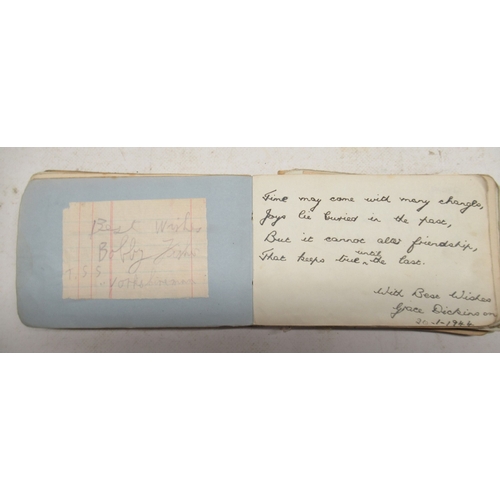 Best Wishes
Bobby
T.S.S
Time may come with many changes,
Joys lie buried in the past,
But it cannot alter friendship,
until
That keeps true ^ the last.
With Best Wishes
Grace Dickinson